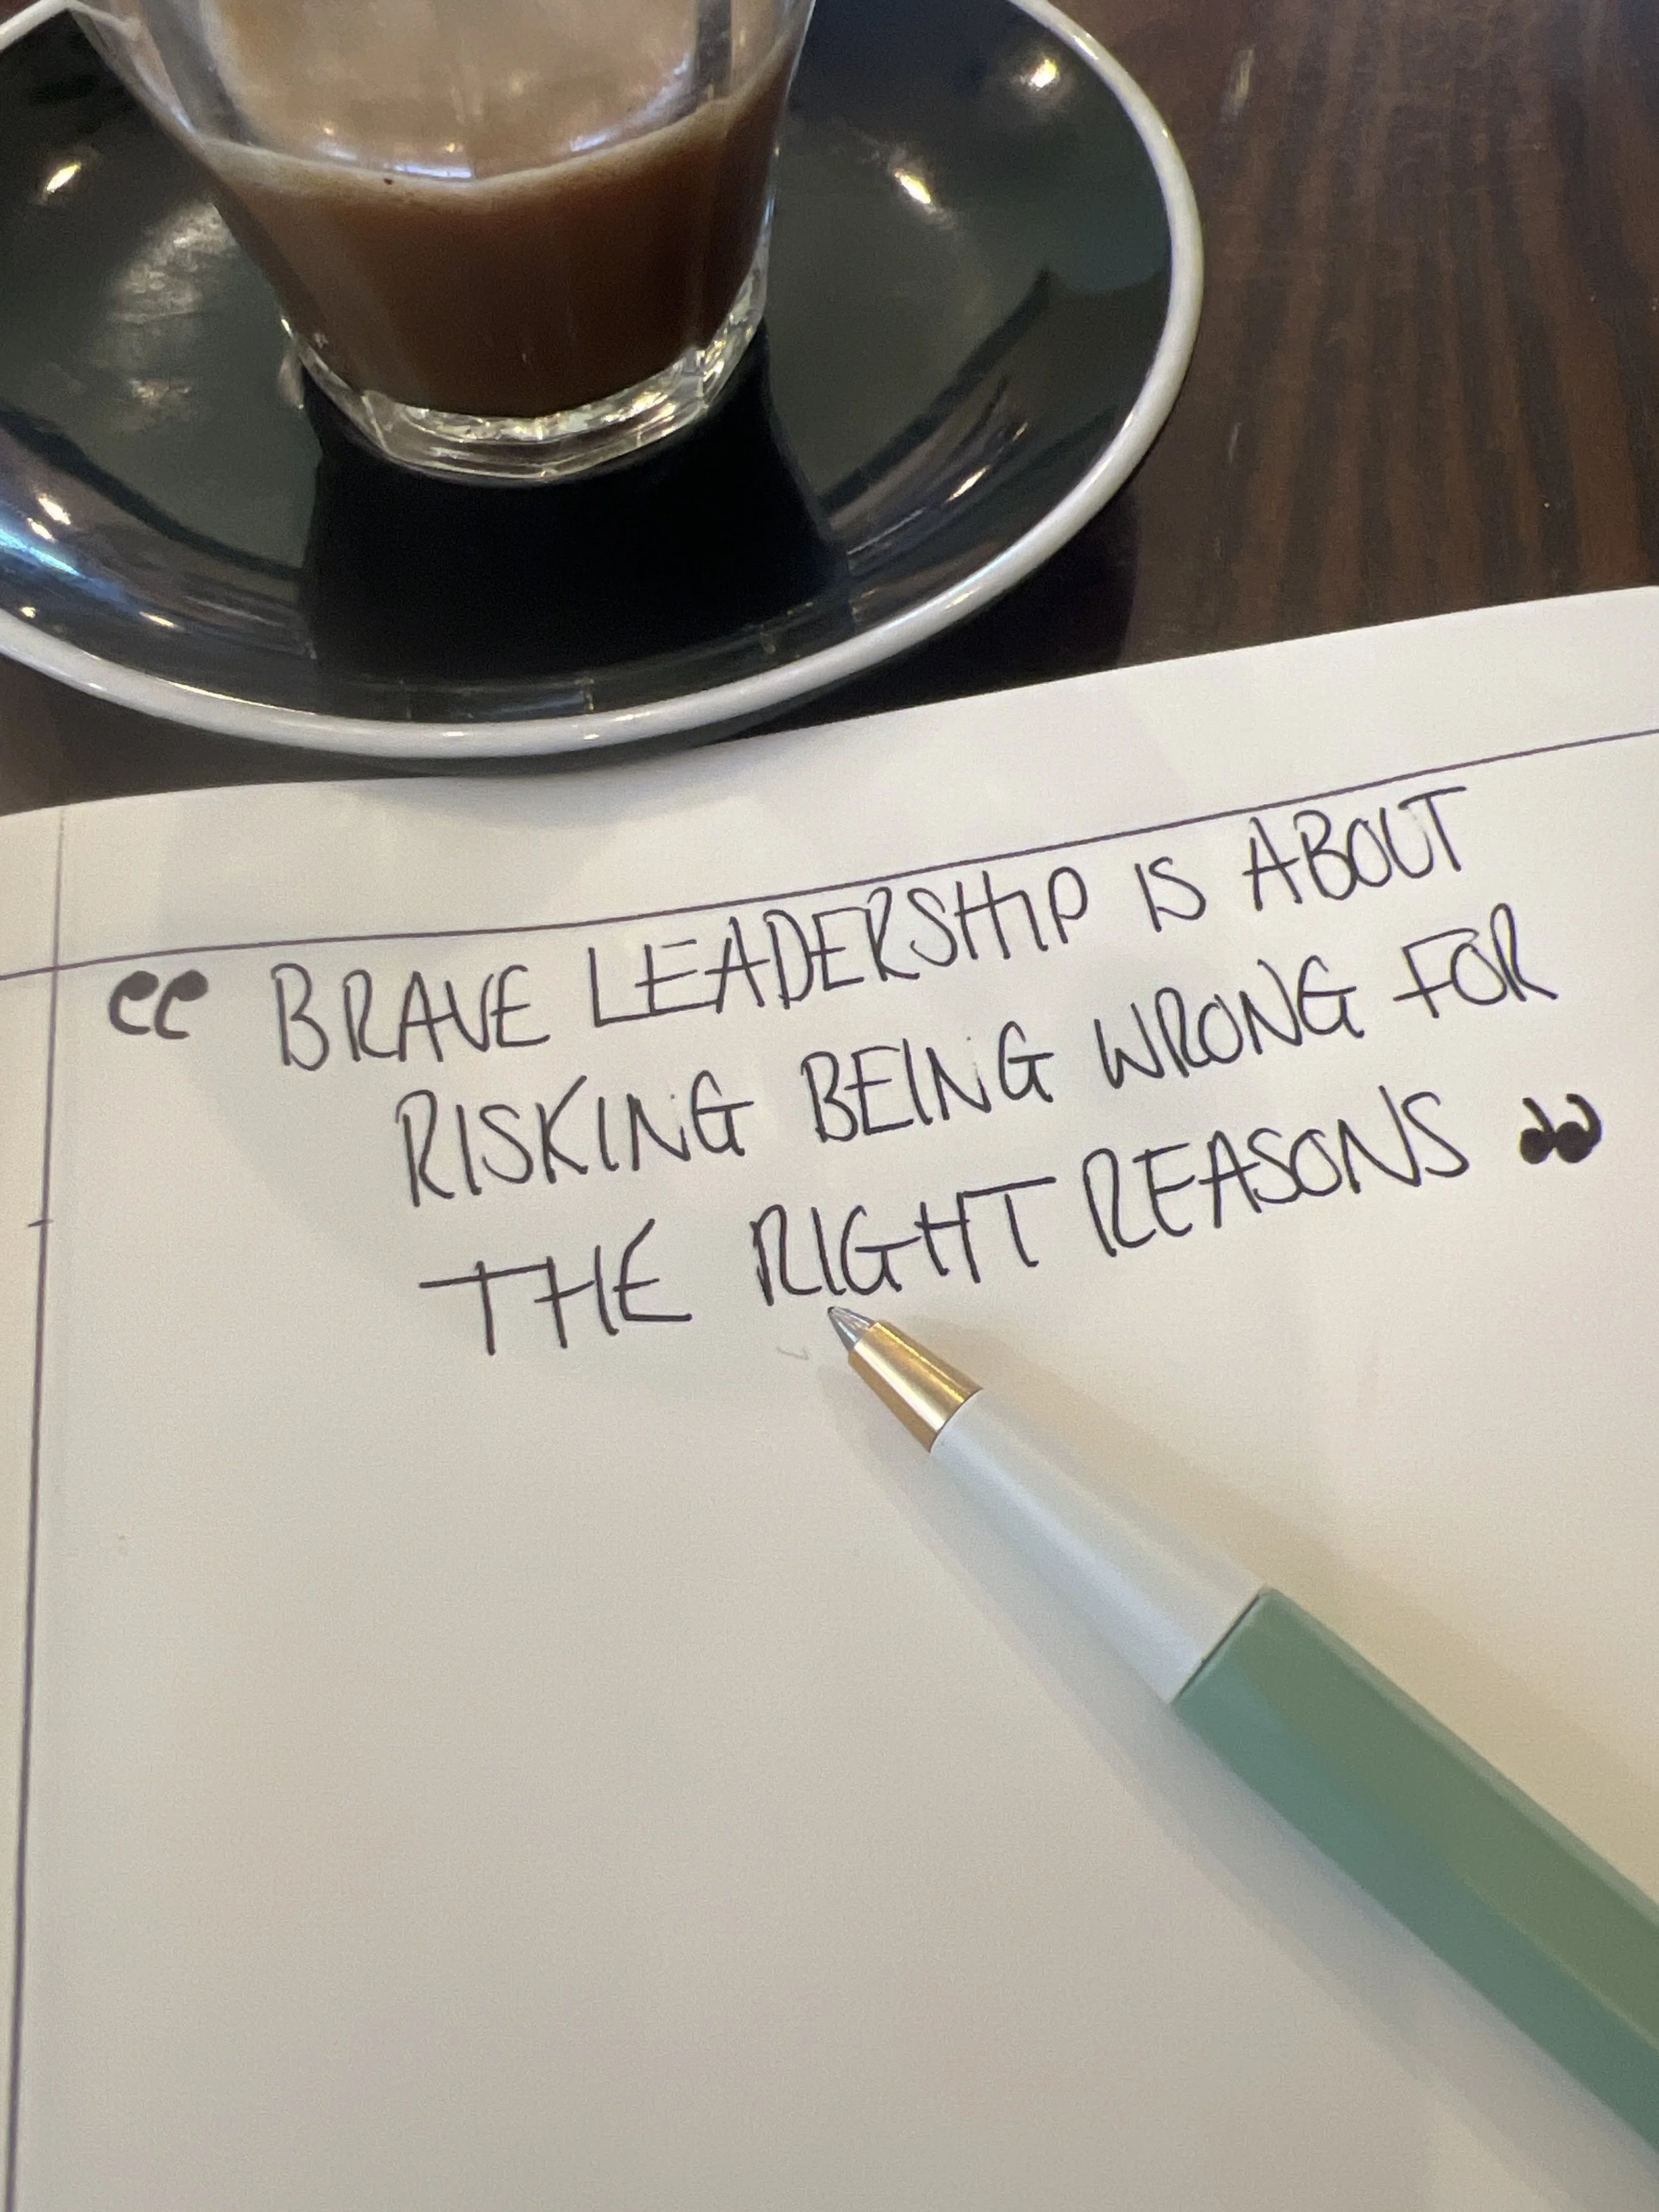 “ BRAVE LEADERSHIP IS ABOUT
RISKING BEING WRONG FOR
THE RIGHT REASONS ”